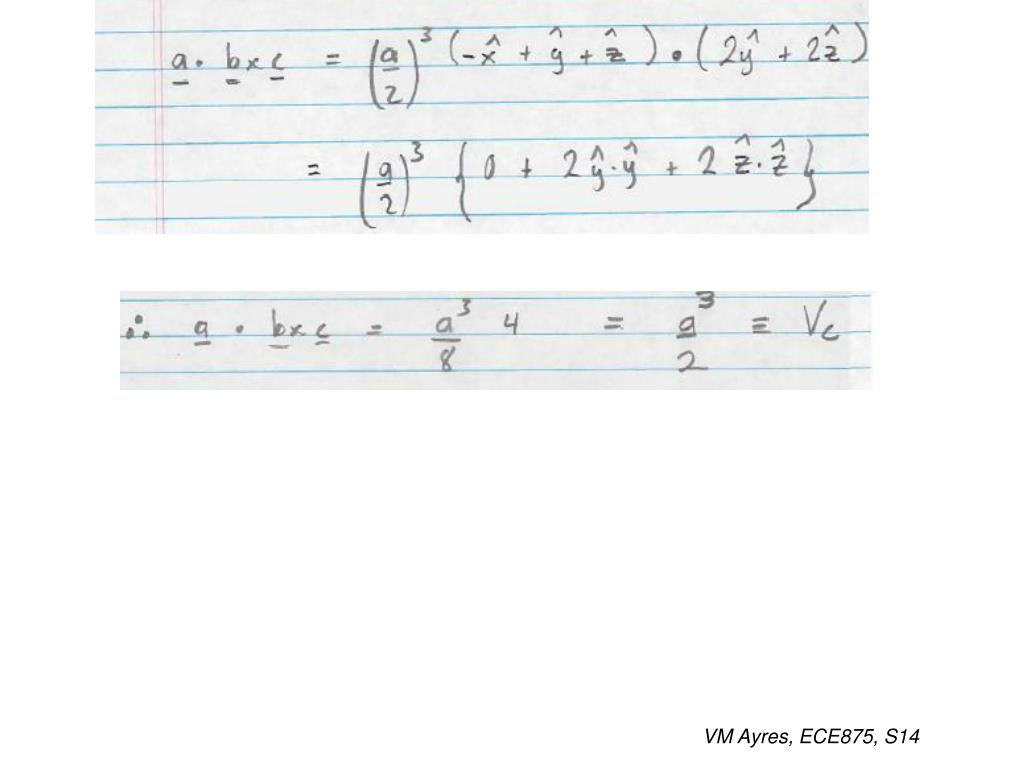 a · b x c = (a/2)³ (-x̂ + ŷ + ẑ) · (2ŷ + 2ẑ)
= (a/2)³ {0 + 2ŷ·ŷ + 2ẑ·ẑ}
∴ a · b x c = a³/8 4 = a³/2 ≡ Vc
VM Ayres, ECE875, S14